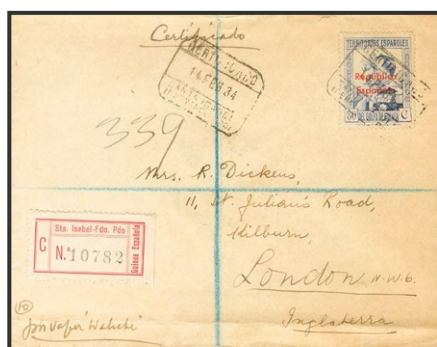 Certificado
CERTIFICADO
14 FEB 34
TERRITORIOS ESPAÑOLES
República
Española
DEL GOLFO DE
339
Mrs. R. Dickens,
11, St. Julian's Road,
Kilburn,
London N.W.6.
Inglaterra
Sta. Isabel-Fdo. Póo
C N.º 10782
Guinea Española
por vapor